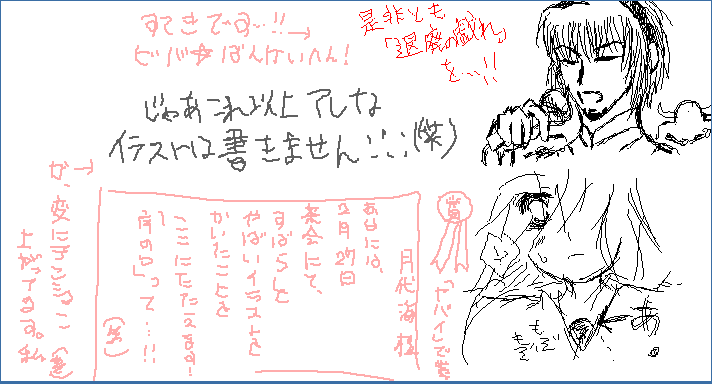 すてきですー…!!→
ビバ☆ばんないたん!
是非とも
「退廃の戯れ」
を…!!
じゃあこれ以上アレな
イラストは書きません…(笑)
賞
「ヤバイ」で賞
月代海様
あなたは、
2月27日
茶会にて、
すばらしと
やばいイラストを
かいたことを
ここにたたえます!
って…!!
(笑)
が、変にテンション
上がってます。私
(笑)
あ
もぞ
もぞ